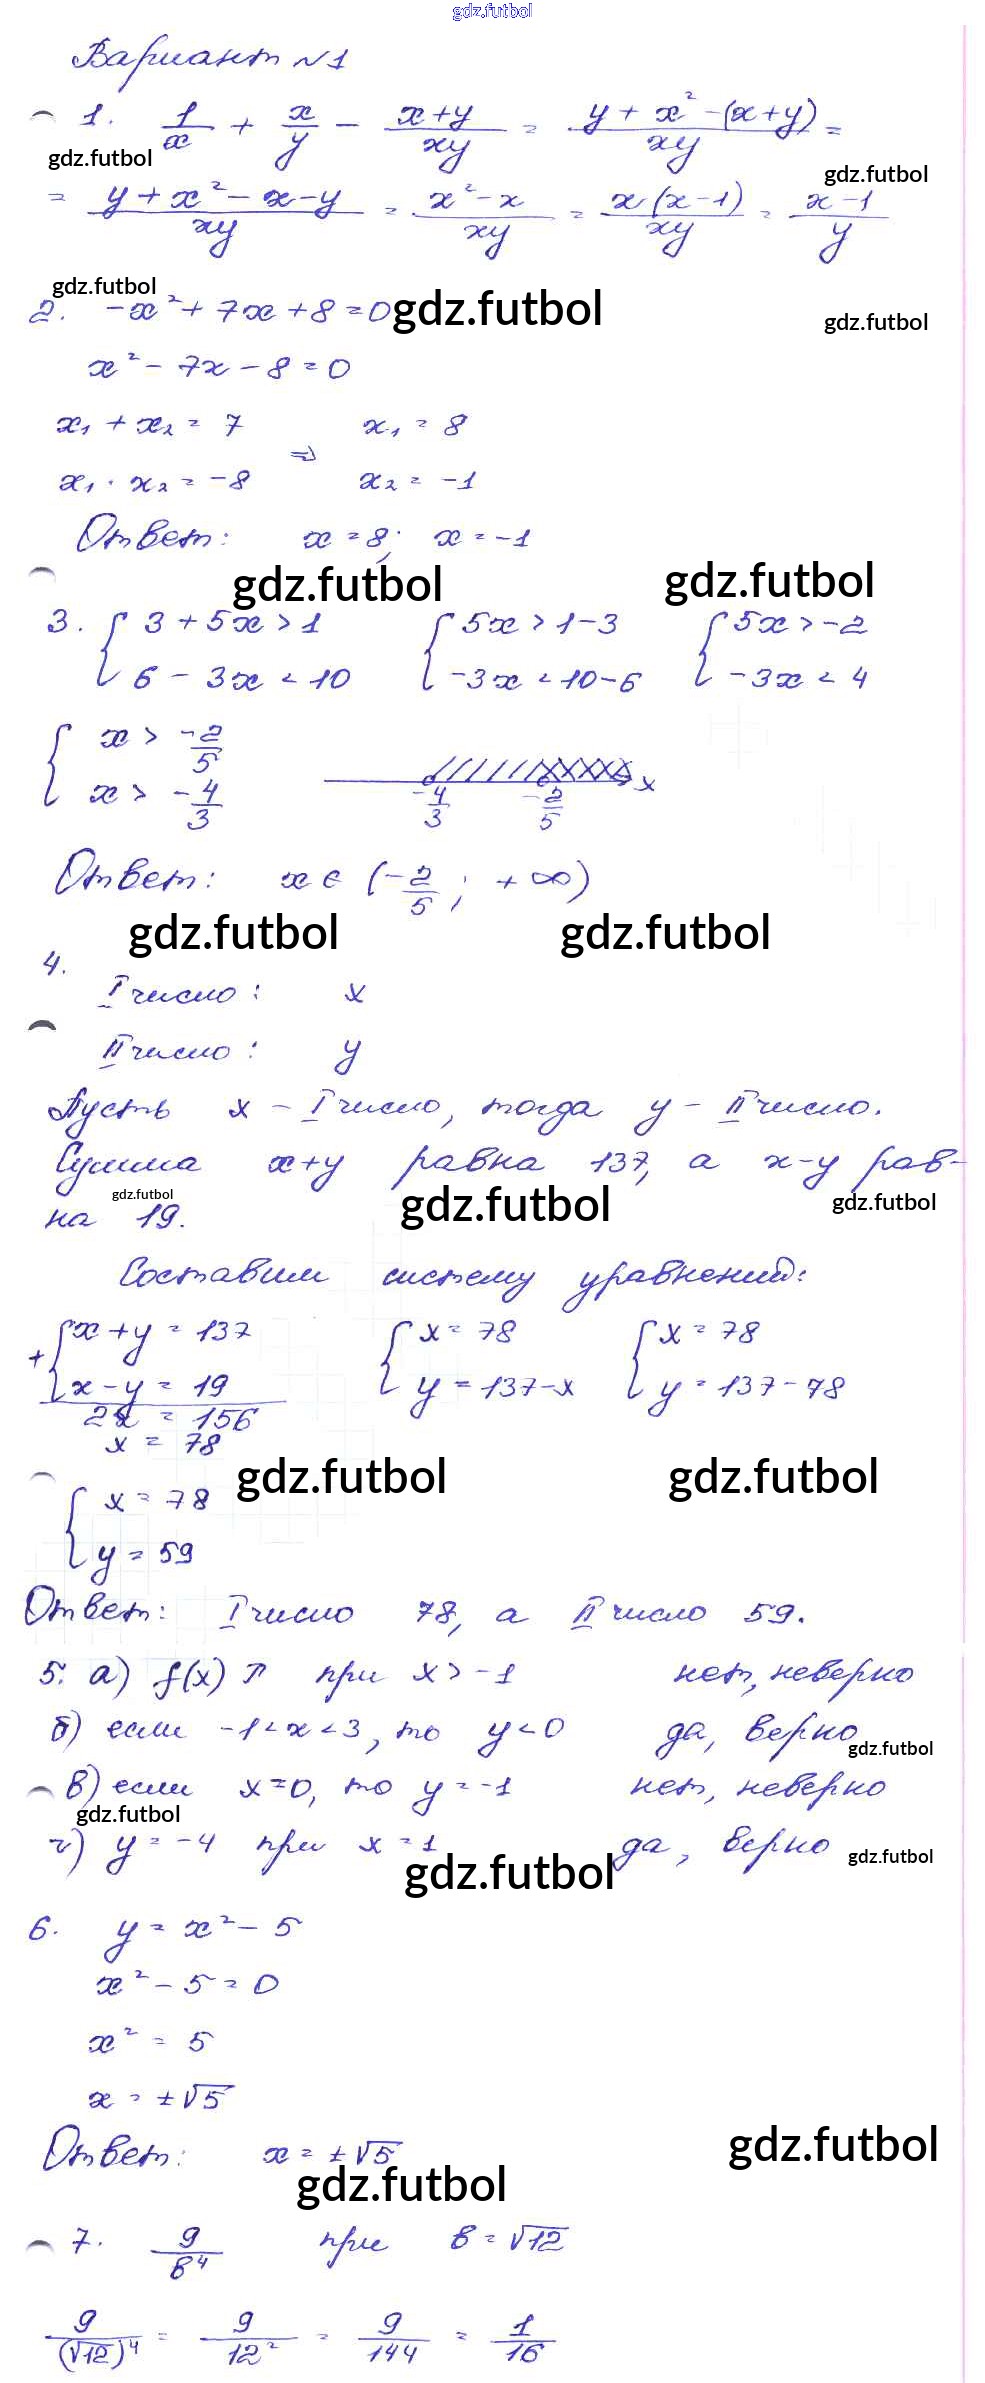 gdz.futbol
Вариант №1
1. 1/x + x/y − (x+y)/xy = (y + x² − (x+y))/xy =
gdz.futbol gdz.futbol
= (y + x² − x − y)/xy = (x² − x)/xy = x(x−1)/xy = (x−1)/y
gdz.futbol
2. −x² + 7x + 8 = 0 gdz.futbol gdz.futbol
x² − 7x − 8 = 0
x₁ + x₂ = 7 x₁ = 8
⇒
x₁ · x₂ = −8 x₂ = −1
Ответ: x = 8; x = −1
gdz.futbol gdz.futbol
3. { 3 + 5x > 1 { 5x > 1 − 3 { 5x > −2
6 − 3x < 10 −3x < 10 − 6 −3x < 4
{ x > −2/5
x > −4/3 −4/3 −2/5 x
Ответ: x ∈ (−2/5; +∞)
gdz.futbol gdz.futbol
4.
I число: x
II число: y
Пусть x − I число, тогда y − II число.
Сумма x+y равна 137, а x−y рав-
gdz.futbol gdz.futbol gdz.futbol
на 19.
Составим систему уравнений:
+ { x + y = 137 { x = 78 { x = 78
x − y = 19 y = 137 − x y = 137 − 78
2x = 156
x = 78
gdz.futbol gdz.futbol
{ x = 78
y = 59
Ответ: I число 78, а II число 59.
5. а) f(x) ↗ при x > −1 нет, неверно
б) если −1 < x < 3, то y < 0 да, верно
gdz.futbol
в) если x = 0, то y = −1 нет, неверно
gdz.futbol
г) y = −4 при x = 1 да, верно
gdz.futbol gdz.futbol
6. y = x² − 5
x² − 5 = 0
x² = 5
x = ±√5
Ответ: x = ±√5 gdz.futbol
gdz.futbol
7. 9/в⁴ при в = √12
9/(√12)⁴ = 9/12² = 9/144 = 1/16